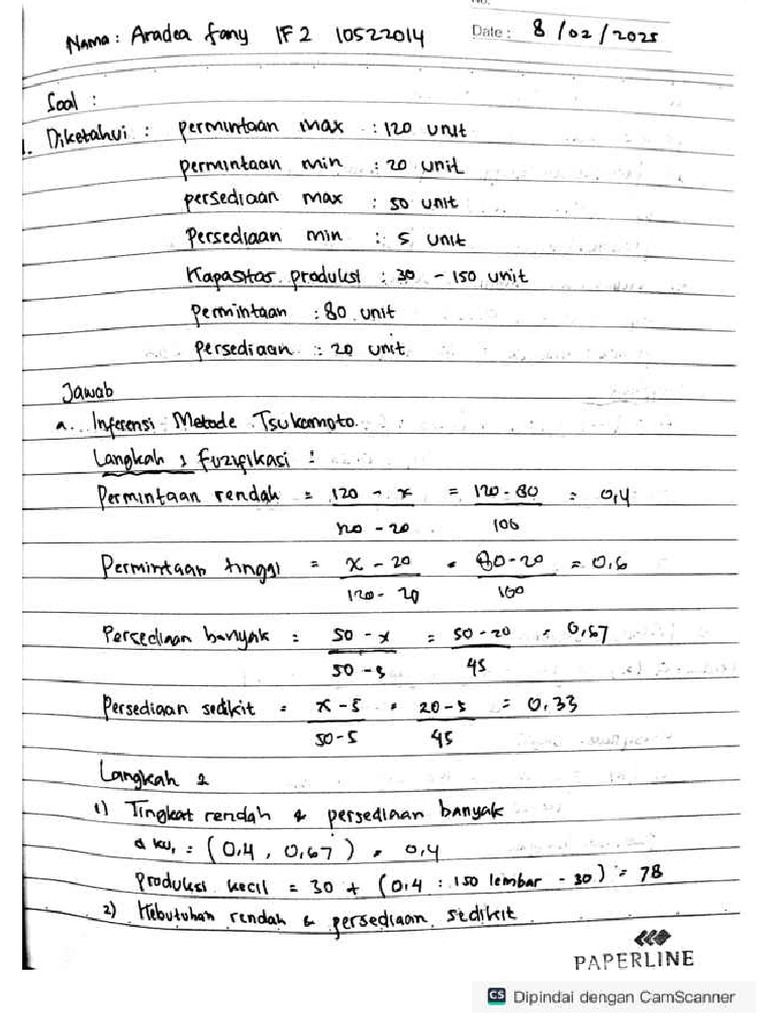 No.
Nama: Aradea fany IF2 10522014 Date: 8/02/2025
Soal :
1. Diketahui : permintaan max : 120 unit
permintaan min : 20 unit
persediaan max : 50 unit
Persediaan min : 5 unit
Kapasitas produksi : 30 - 150 unit
Permintaan : 80 unit
Persediaan : 20 unit
Jawab
a. Inferensi Metode Tsukamoto
Langkah 1 Fuzifikasi :
Permintaan rendah = 120 - x / 120 - 20 = 120 - 80 / 100 = 0,4
Permintaan tinggi = x - 20 / 120 - 20 = 80 - 20 / 100 = 0,6
Persediaan banyak = 50 - x / 50 - 5 = 50 - 20 / 45 = 0,67
Persediaan sedikit = x - 5 / 50 - 5 = 20 - 5 / 45 = 0,33
Langkah 2
1) Tingkat rendah & persediaan banyak
= (0,4 , 0,67) = 0,4
Produksi kecil = 30 + (0,4 : 150 lembar - 30) = 78
2) Kebutuhan rendah & persediaan sedikit
PAPERLINE
CS Dipindai dengan CamScanner